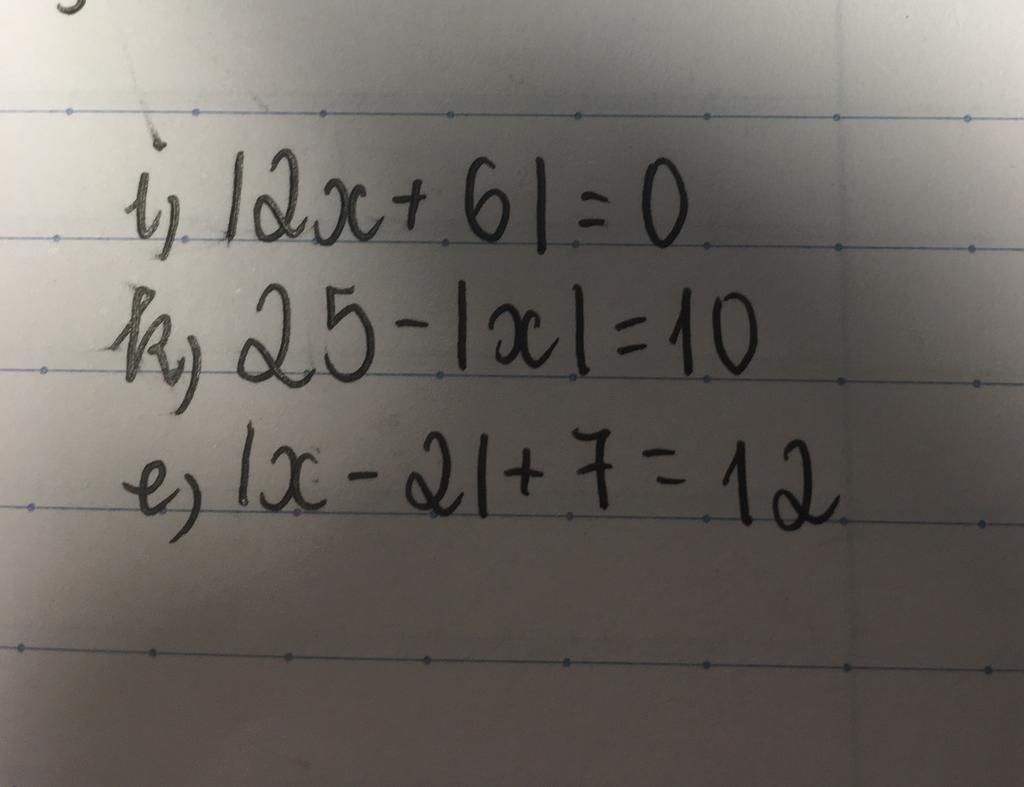 i, |2x + 6| = 0
k, 25 - |x| = 10
e, |x - 2| + 7 = 12